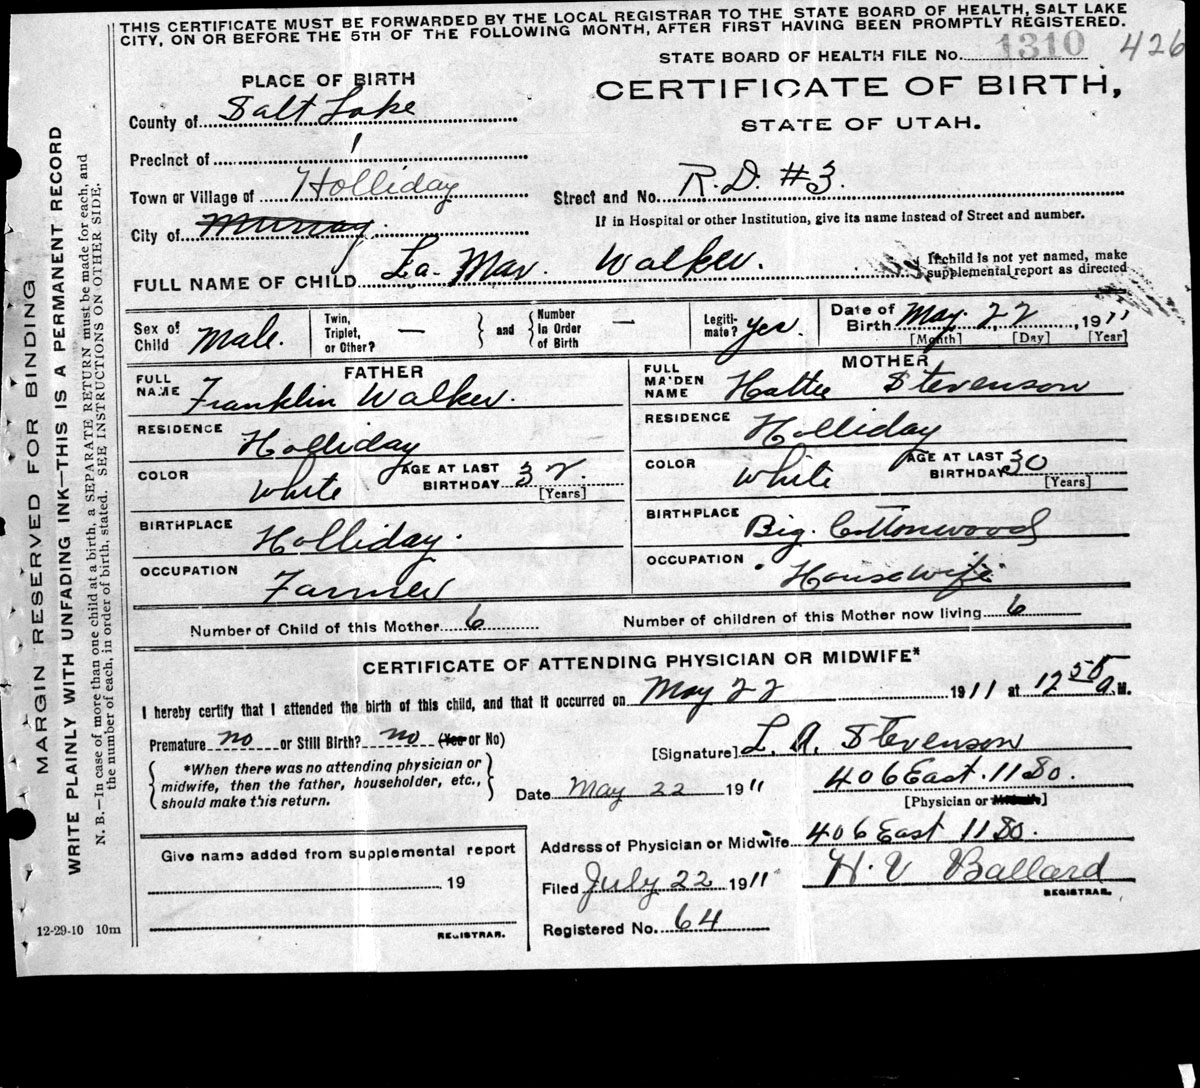 THIS CERTIFICATE MUST BE FORWARDED BY THE LOCAL REGISTRAR TO THE STATE BOARD OF HEALTH, SALT LAKE
CITY, ON OR BEFORE THE 5TH OF THE FOLLOWING MONTH, AFTER FIRST HAVING BEEN PROMPTLY REGISTERED.
STATE BOARD OF HEALTH FILE No. 1310 426
PLACE OF BIRTH
CERTIFICATE OF BIRTH,
STATE OF UTAH.
County of Salt Lake
Precinct of 1
Town or Village of Holliday
Street and No. R.D. #3.
If in Hospital or other Institution, give its name instead of Street and number.
City of Murray.
FULL NAME OF CHILD La-Mar. Walker.
If child is not yet named, make
supplemental report as directed
Sex of Child Male.
Twin, Triplet, or Other? —
and
Number In Order of Birth —
Legiti-mate? yes.
Date of Birth May 22, 1911
[Month] [Day] [Year]
FATHER
FULL NAME Franklin Walker.
RESIDENCE Holliday
COLOR White
AGE AT LAST BIRTHDAY 32.
[Years]
BIRTHPLACE Holliday.
OCCUPATION Farmer
MOTHER
FULL MAIDEN NAME Hattie Stevenson
RESIDENCE Holliday
COLOR White
AGE AT LAST BIRTHDAY 30
[Years]
BIRTHPLACE Big. Cottonwood
OCCUPATION Housewife
Number of Child of this Mother 6
Number of children of this Mother now living 6
CERTIFICATE OF ATTENDING PHYSICIAN OR MIDWIFE*
I hereby certify that I attended the birth of this child, and that it occurred on May 22 1911 at 12 50 a.M.
Premature no or Still Birth? no (Yes or No)
*When there was no attending physician or
midwife, then the father, householder, etc.,
should make this return.
[Signature] L. A. Stevenson
406 East. 11 So.
Date May 22 1911
[Physician or Midwife]
Address of Physician or Midwife 406 East 11 So.
Filed July 22 1911 H. V Ballard
REGISTRAR.
Registered No. 64
Give name added from supplemental report
19
REGISTRAR.
12-29-10 10m
MARGIN RESERVED FOR BINDING
WRITE PLAINLY WITH UNFADING INK—THIS IS A PERMANENT RECORD
N. B.—In case of more than one child at a birth, a SEPARATE RETURN must be made for each, and
the number of each, in order of birth, stated. SEE INSTRUCTIONS ON OTHER SIDE.